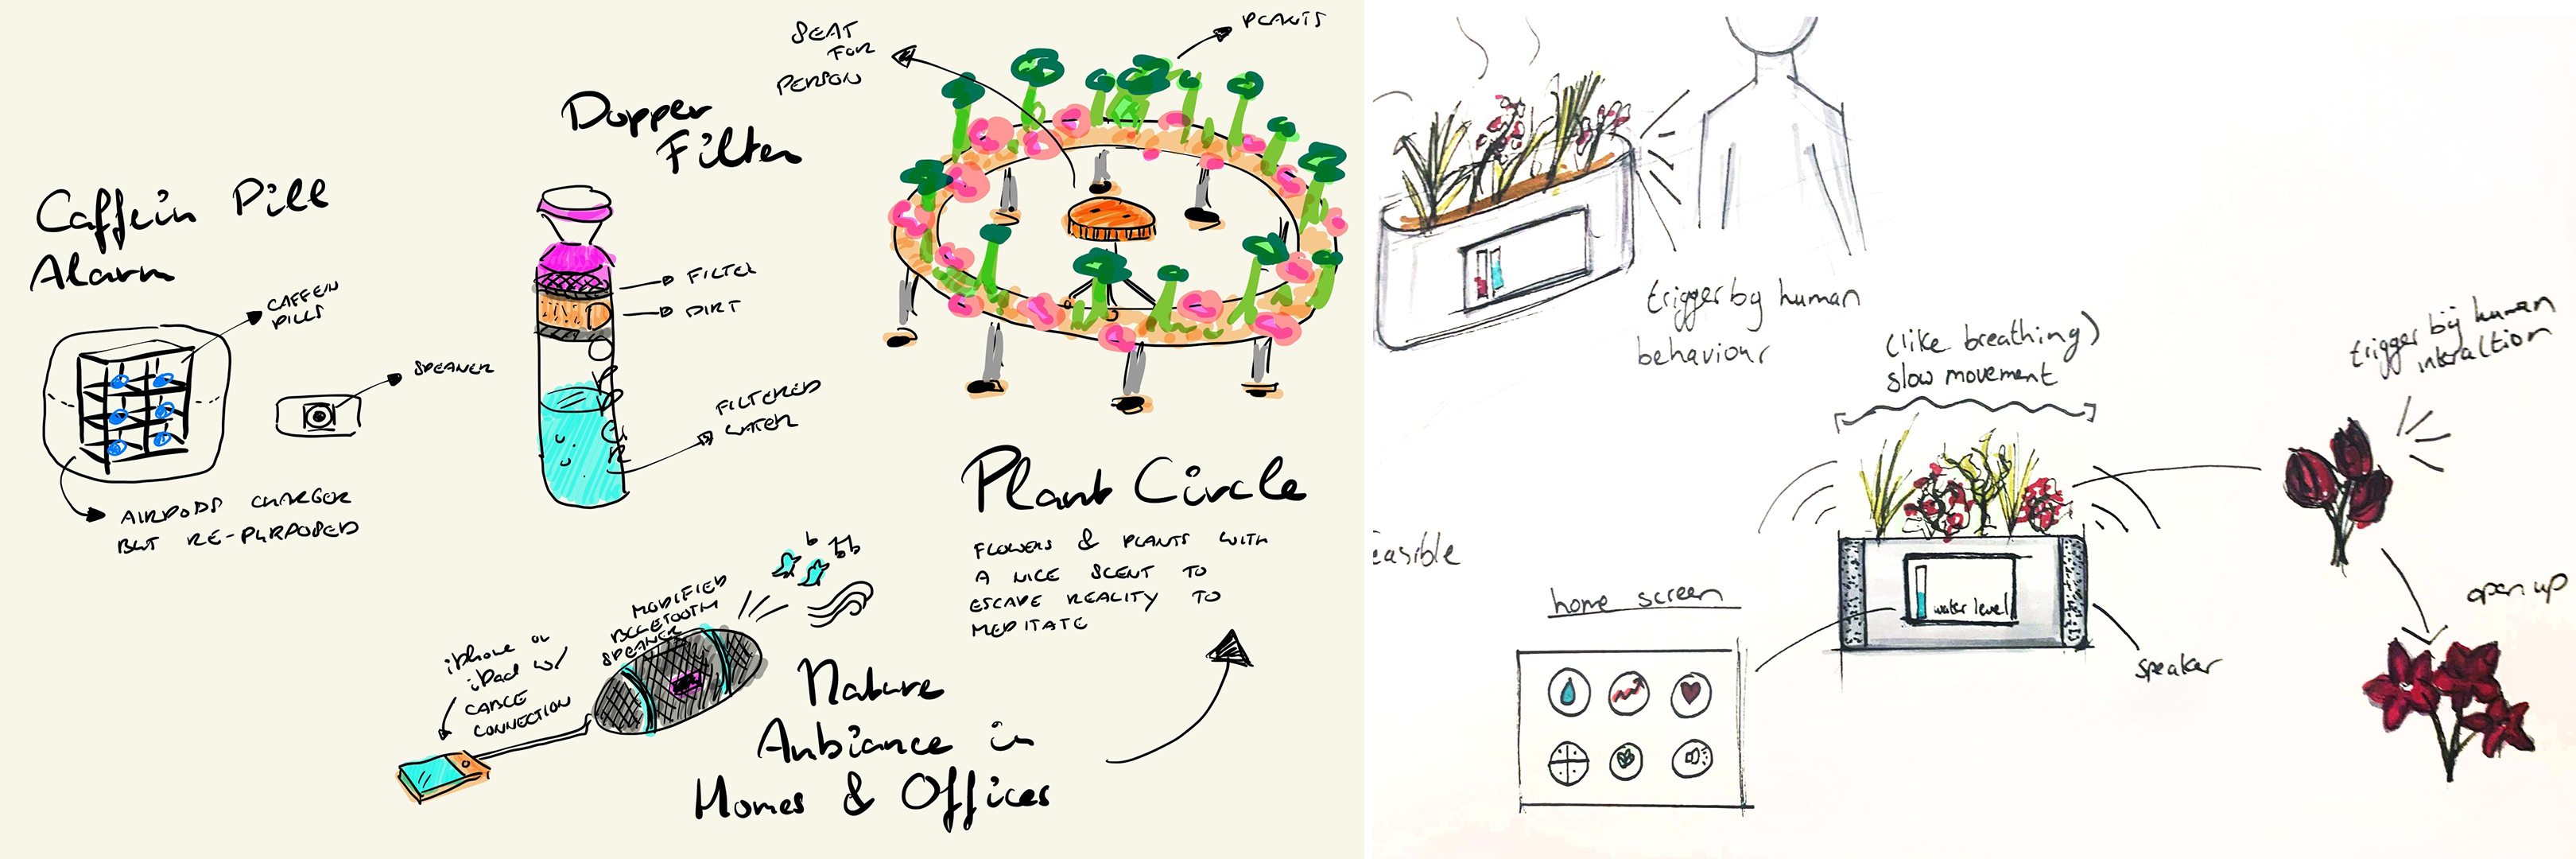 Caffein Pill
Alarm
CAFFEIN
PILLS
SPEAKER
AIRPODS CHARGER
BUT RE-PURPOSED
Dopper
Filter
FILTER
DIRT
FILTERED
WATER
SEAT
FOR
PERSON
PLANTS
Plant Circle
FLOWERS & PLANTS WITH
A NICE SCENT TO
ESCAPE REALITY TO
MEDITATE
MODIFIED
BLUETOOTH
SPEAKER
iPhone or
iPad w/
CABLE
CONNECTION
Nature
Anbiance in
Homes & Offices
trigger by human
behaviour
(like breathing)
slow movement
trigger by human
interaction
easible
home screen
water level
speaker
open up